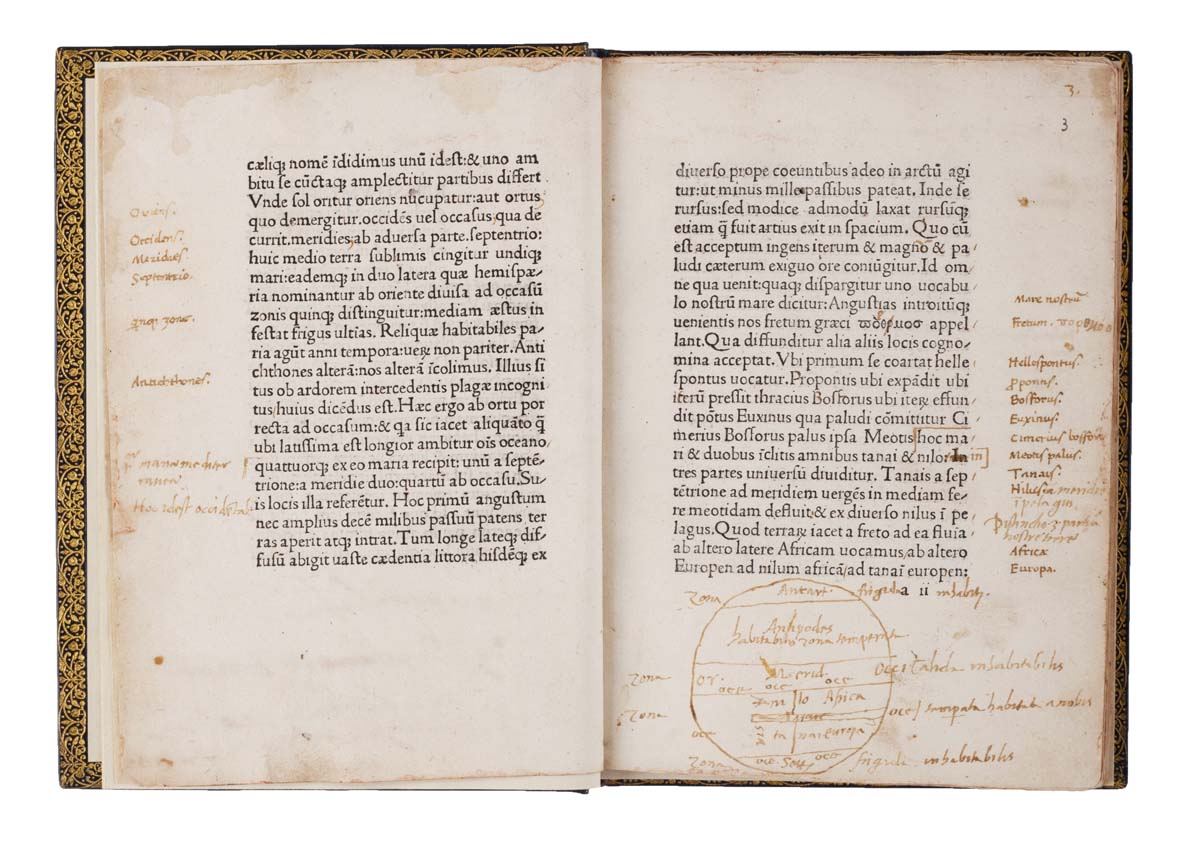 cæliq; nomē īdidimus unū idest:& uno am
bitu se cūctaq; amplectitur partibus differt
Vnde sol oritur oriens nūcupatur:aut ortus
quo demergitur.occidēs uel occasus, qua de
currit.meridies;ab aduersa parte.septentrio:
huic medio terra sublimis cingitur undiq;
mari:eademq; in duo latera quæ hemispæ-
ria nominantur ab oriente diuisa ad occasū
zonis quinq; distinguitur:mediam æstus in
festat frigus ultias. Reliquæ habitabiles pa-
ria agūt anni tempora:ueꝝ non pariter. Anti
chthones alterā:nos alterā īcolimus. Illius si
tus ob ardorem intercedentis plagæ incogni
tus/huius dicēdus est. Hæc ergo ab ortu por
recta ad occasum:& qa sic iacet aliquāto q̄
ubi latissima est longior ambitur oīs oceano
quattuorq; ex eo maria recipit: unū a septē-
trione:a meridie duo:quartū ab occasu. Su-
is locis illa referētur. Hoc primū angustum
nec amplius decē milibus passuū patens, ter
ras aperit atq; intrat. Tum longe lateq; dif-
fusū abigit uaste cædentia littora hisdēq; ex
Oriens.
Occidens.
Meridies.
Septentrio.
q̄nq; zonę.
Antichthones.
mare mediter
ranea
Hoc idest occidētal
3.
3
diuerso prope coeuntibus adeo in arctū agi
tur:ut minus mille passibus pateat. Inde se
rursus:sed modice admodū laxat rursūq;
etiam q̄ fuit artius exit in spacium. Quo cū
est acceptum ingens iterum & magno & pa-
ludi cæterum exiguo ore coniūgitur. Id om
ne qua uenit:quaq; dispargitur uno uocabu
lo nostrū mare dicitur: Angustias introitūq;
uenientis nos fretum græci πορθμοσ appel
lant. Qua diffunditur alia aliis locis cogno-
mina acceptat. Vbi primum se coartat helle
spontus uocatur. Propontis ubi expādit ubi
iterū pressit thracius Bosforus ubi iteꝝ effun
dit pōtus Euxinus qua paludi cōmittitur Ci
merius Bosforus palus ipsa Meotis hoc ma
ri & duobus īclitis amnibus tanai & nilo In
tres partes uniuersū diuiditur. Tanais a sep
tētrione ad meridiem uergēs in mediam fe-
re meotidam defluit:& ex diuerso nilus ī pe
lagus. Quod terraꝝ iacet a freto ad ea fluīa
ab altero latere Africam uocamus, ab altero
Europen ad nilum africā, ad tanaī europen:
a ii
Mare nostrū
Fretum. πορθμοσ
Hellespontus.
ꝓpontis.
Bosforus.
Euxinus.
Cimerius bosforus
Meotis palus.
Tanais.
Nilus a meridie
ī pelagus
Distinctio
nostre terre
Africa
Europa.
Zona Antart. frigida inhabit.
Antipodes
habitabilis zona temperata
Zona Or. Merid. Occi Calida inhabitabilis
oce oce oce
nilo Africa
Zona oce temperata habitata a nobis
oce europa
Zona oce. Sept oce frigida inhabitabilis